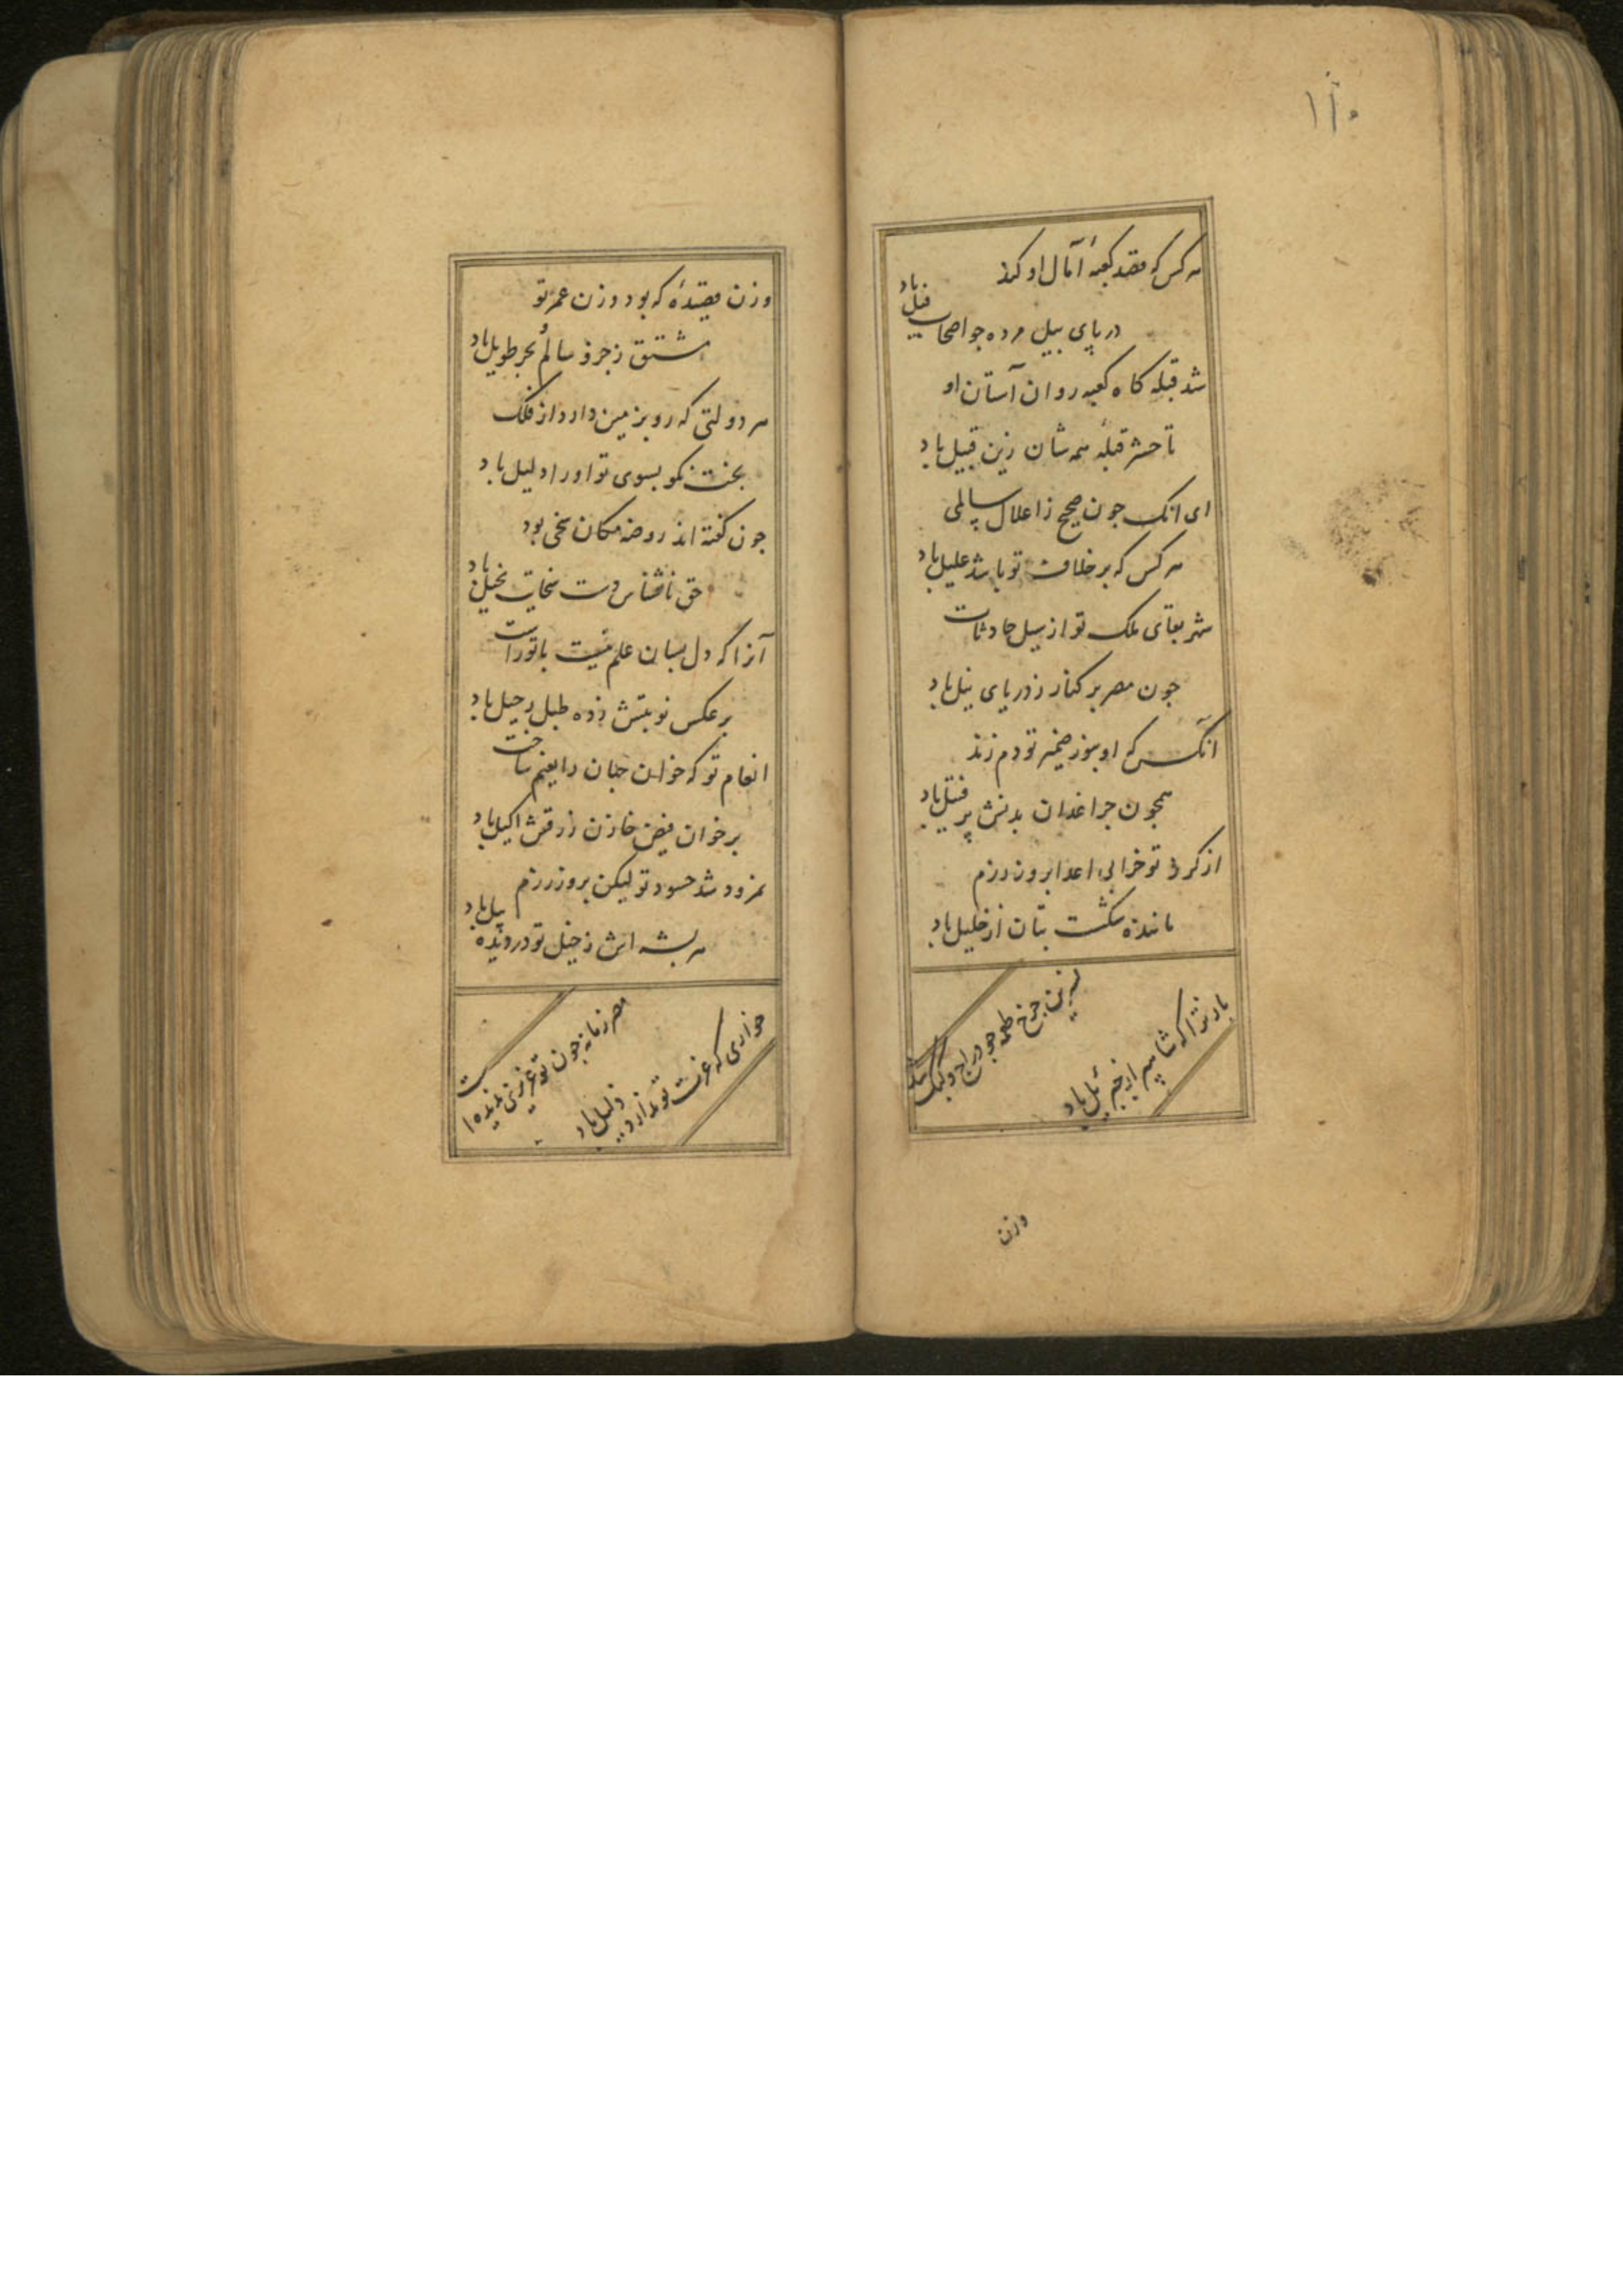 ۱۱۰
هر کس که قصد کعبهٔ آمال او کند
در پای پیل مرده جو اصحاب فیل باد
شد قبله کاه کعبه روان آستان او
تا حشر قبلهٔ همه شان زین قبیل باد
ای آنک جون صحیح ز اعلال سالمی
هر کس که بر خلاف تو باشد علیل باد
شهر بقای ملک تو از سیل حادثات
جون مصر بر کنار ز دریای نیل باد
آنکس که او بسوز ضمیر تو دم زند
همجون جراغدان بدنش پر فتیل باد
از کرز تو خرابی اعدا بروز رزم
ماننده شکست بتان از خلیل باد
جرخ طعمه جو دراج و کبک شد
باز ترا که شاهپر از جبرئیل باد
وزن
وزن قصیدهٔ که بود وزن عمر تو
مشتق ز جزو سالم بحر طویل باد
هر دولتی که رو بزمین دارد از فلک
بخت نکو بسوی تو او را دلیل باد
جون کفته اند روضه مکان سخی بود
حق ناشناس دست سخایت بخیل باد
آنرا که دل بسان علم نیست با تو راست
بر عکس نوبتش زده طبل رحیل باد
انعام تو که خوان جهان را بغنم ساخت
بر خوان فیض خازن رزقش اکیل باد
نمرود شد حسود تو لیکن بروز رزم
هر پشه اش ز خیل تو در دیده پیل باد
مصر زمانه جون تو عزیزی ندیده است
خواری که عزت تو ندارد ذلیل باد